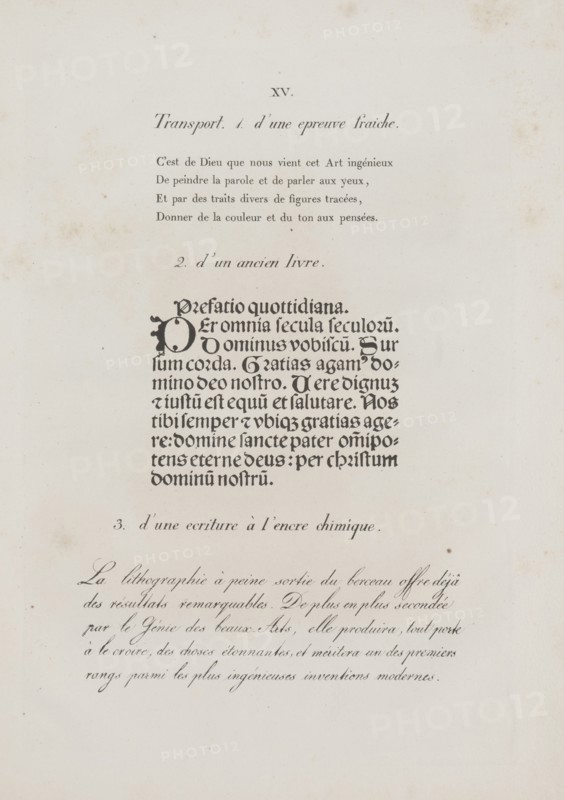 XV.
Transport. 1. d'une epreuve fraiche.
C'est de Dieu que nous vient cet Art ingénieux
De peindre la parole et de parler aux yeux,
Et par des traits divers de figures tracées,
Donner de la couleur et du ton aux pensées.
2. d'un ancien livre.
Prefatio quottidiana.
PEr omnia secula seculorū.
Dominus vobiscū. Sur
sum corda. Gratias agamꝰ do⸗
mino deo nostro. Uere dignuʒ
⁊ iustū est equū et salutare. Nos
tibi semper ⁊ vbiqʒ gratias age⸗
re: domine sancte pater om̄ipo⸗
tens eterne deus: per christum
dominū nostrū.
3. d'une ecriture à l'encre chimique.
La lithographie à peine sortie du berceau offre déjà
des résultats remarquables. De plus en plus secondée
par le Génie des beaux Arts, elle produira, tout porte
à le croire, des choses étonnantes, et méritera un des premiers
rangs parmi les plus ingénieuses inventions modernes.
PHOTO12